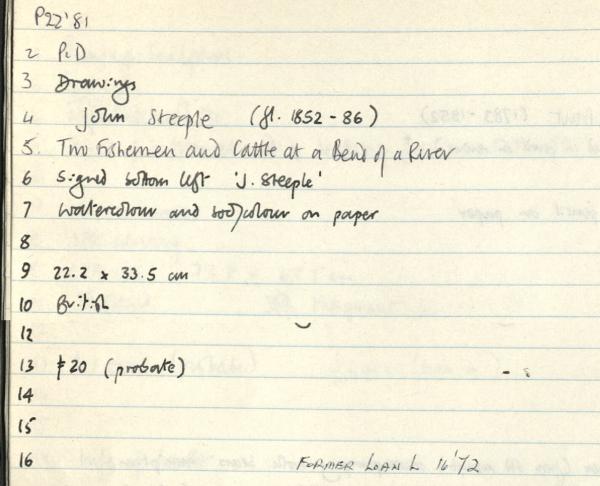 P22'81
2 P&D
3 Drawings
4 John Steeple (fl. 1852-86)
5. Two Fishermen and Cattle at a Bend of a River
6 Signed bottom left 'J. Steeple'
7 Watercolour and bodycolour on paper
8
9 22.2 x 33.5 cm
10 British
12
13 £20 (probate)
14
15
16 FORMER LOAN L 16'72